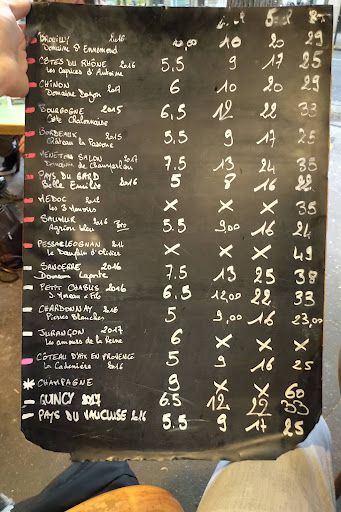 BROUILLY 2016 6,00 10 20 29
Domaine St Ennemond
CÔTES DU RHÔNE 2016 5,5 9 17 25
Les Caprices d'Antoine
CHINON 6 10 20 29
Domaine 2017
BOURGOGNE 2015 6,5 12 22 33
Côte Chalonnaise
BORDEAUX 2015 5.5 9 17 25
Château la
MENETOU SALON 2017 7.5 13 24 35
Domaine de
PAYS DU GARD 5 8 16 22
Belle Emilie 2016
MEDOC X X X 35
Les 3
SAUMUR 2016 Bio 5.5 9,00 16 24
bleu
X X X 49
Le Dauphin d'Olivier
SANCERRE 2016 7.5 13 25 38
Domaine Laporte
PETIT CHABLIS 2016 6,5 12,00 22 33
J. Moreau & Fils
CHARDONNAY 2016 5 9,00 16 23,00
Pierres Blanches
JURANÇON 2017 6 X X X
Les amours de la Reine
CÔTEAU D'AIX EN PROVENCE 5 9 16 25
La Cadenière 2016
CHAMPAGNE 9 X X 60
QUINCY 2017 6.5 12 22 33
PAYS DU VAUCLUSE 2016 5.5 9 17 25